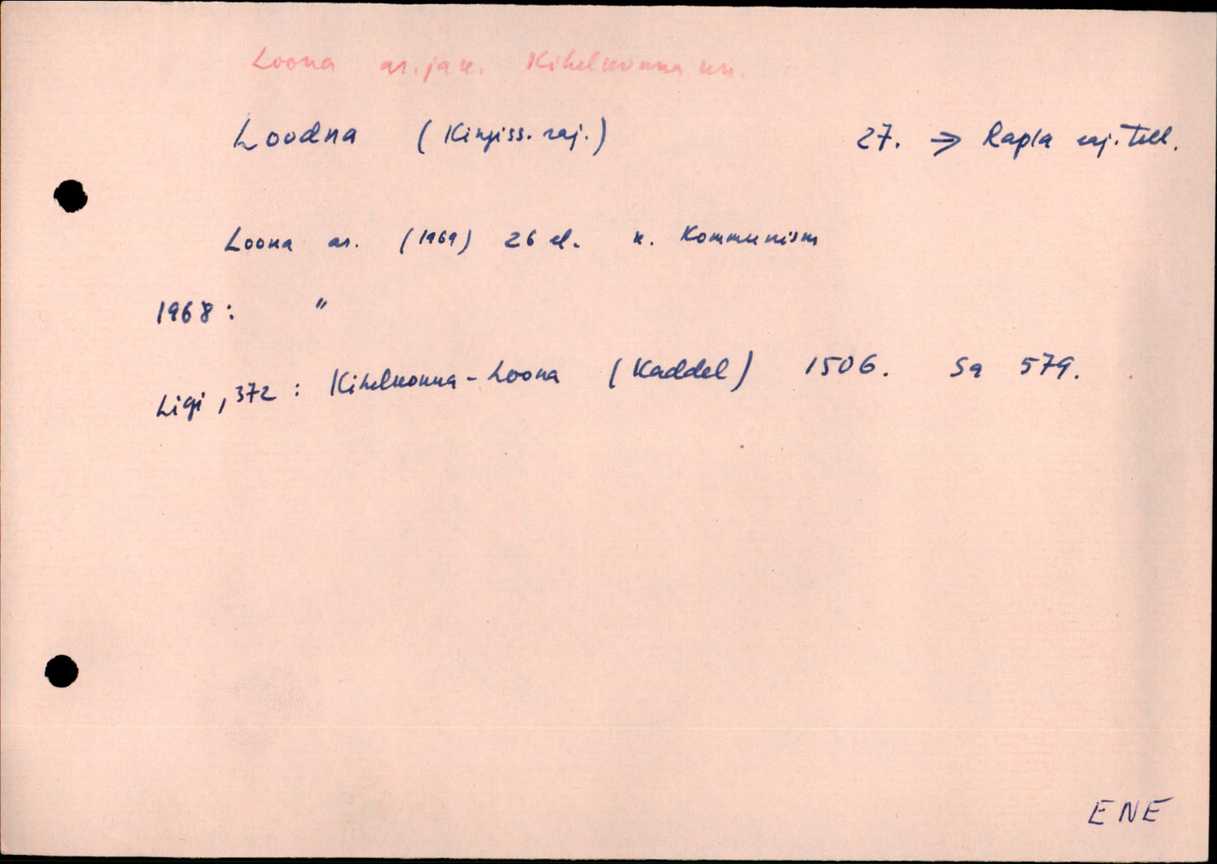 Loona as. ja k. Kihelkonna kn.
Loodna (Kingiss. raj.) 27. → Rapla raj. Tell.
Loona as. (1969) 26 el. k. Kommunism
1968: "
Ligi, 372: Kihelkonna-Loona (Kaddel) 1506. Sa 579.
ENE